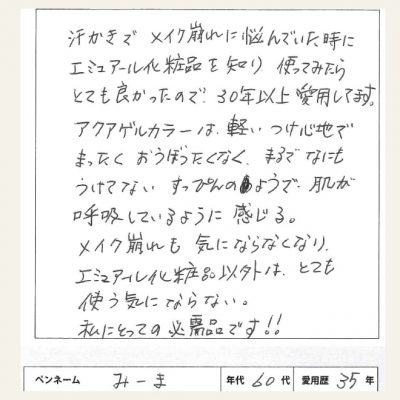 汗かきで メイク崩れに悩んでいた時に
エミュアール化粧品を知り 使ってみたら
とても良かったので、30年以上愛用してます。
アクアゲルカラーは、軽いつけ心地で
まったく おうぼったくなく、まるでなにも
うけてない すっぴんのようで、肌が
呼吸しているように 感じる。
メイク崩れも 気にならなくなり、
エミュアール化粧品以外は、とても
使う気にならない。
私にとっての必需品です!!
ペンネーム みーま 年代 60代 愛用歴 35年